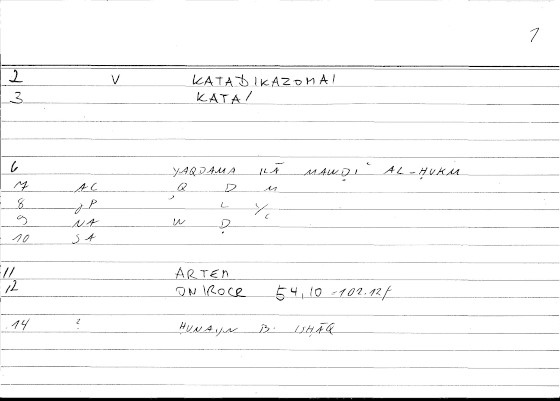 1
2 V KATADIKAZOMAI
3 KATA/
6 YAQDAMA ILĀ MAWḌIʿ AL-ḤUKM
7 AC Q D M
8 JP ʾ L Y/
9 NA W Ḍ ʿ
10 SA
11 ARTEM
12 ONIROCR 54,10 -102.12f
14 : ḤUNAJN B. ISḤĀQ